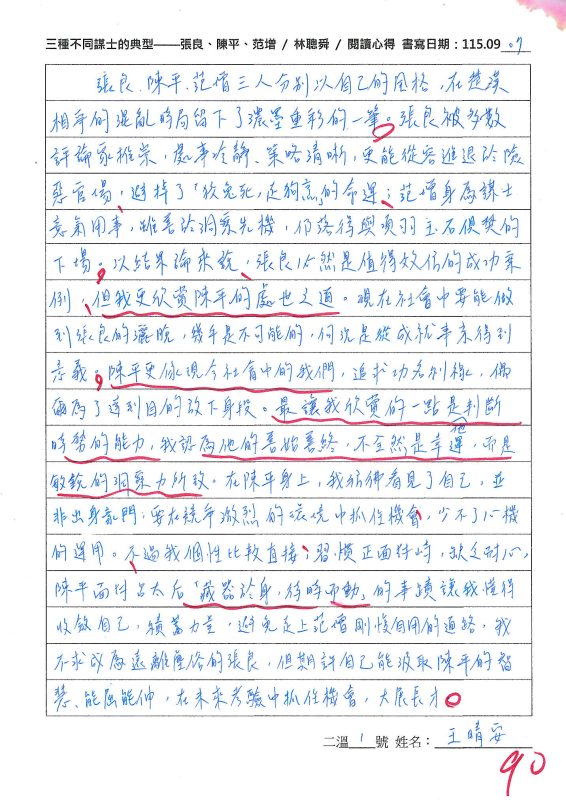 三種不同謀士的典型——張良、陳平、范增 / 林聰舜 / 閱讀心得 書寫日期：115.09 07
張良、陳平、范增三人分別以自己的風格，在楚漢
相爭的混亂時局留下了濃墨重彩的一筆。張良被多數
評論家推崇，處事冷靜、策略清晰，更能從容進退於險
惡官場，避掉了「狡兔死，走狗烹」的命運；范增身為謀士
意氣用事，雖善於洞察先機，仍落得與項羽玉石俱焚的
下場。以結果論來說，張良仍然是值得效仿的成功案
例，但我更欣賞陳平的處世之道。現在社會中要能做
到張良的灑脫，幾乎是不可能的，何況是從成就事來得到
意義。陳平更像現今社會中的我們，追求功名利祿，偶
爾為了達到目的放下身段。最讓我欣賞的一點是判斷
時勢的能力，我認為他的善始善終，不全然是幸運，而是
他
敏銳的洞察力所致。在陳平身上，我彷彿看見了自己，並
非出身豪門，要在競爭激烈的環境中抓住機會，少不了心機
的運用。不過我個性比較直接，習慣正面對峙，缺乏耐心，
陳平面對呂太后「藏器於身，待時而動」的事蹟讓我懂得
收斂自己，積蓄力量，避免走上范增剛愎自用的道路，我
不求成為遠離塵俗的張良，但期許自己能汲取陳平的智
慧、能屈能伸，在未來考驗中抓住機會，大展長才。
二溫 1 號 姓名： 王晴安
90